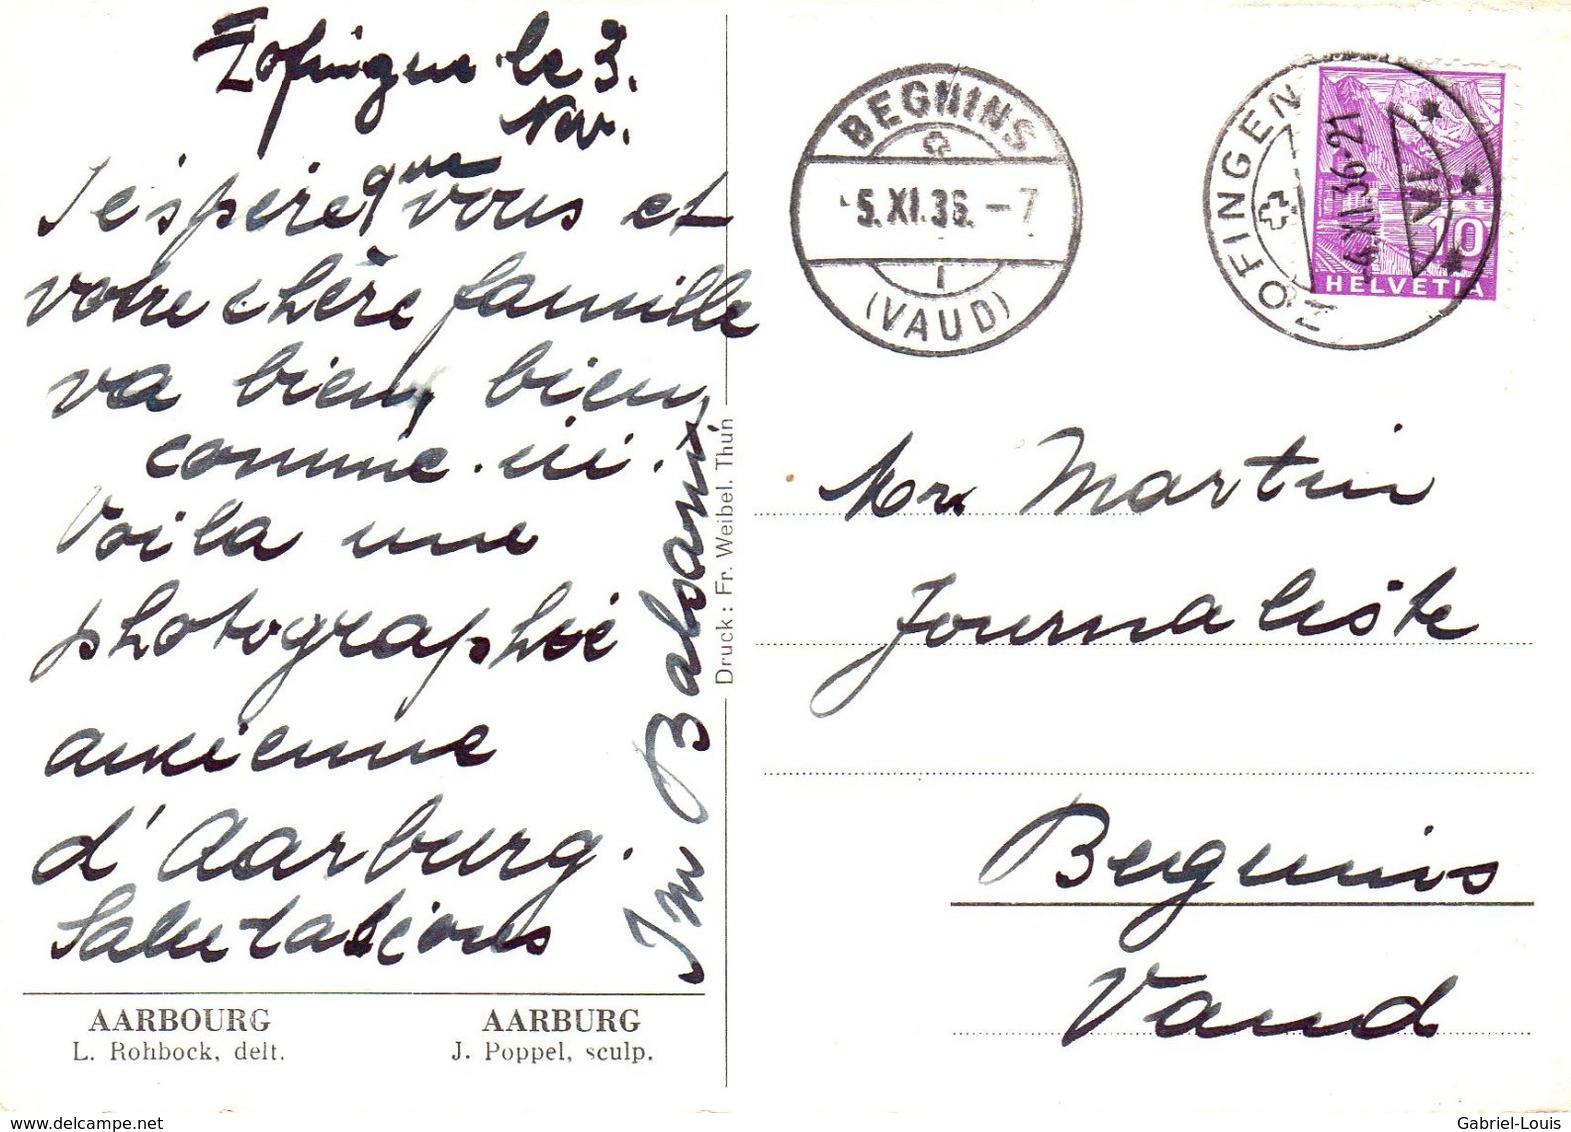 Zofingue le 3.
Nov.
J'espère que vous et
votre chère famille
va bien, bien,
comme ici.
Voila une
photographie
ancienne
d'Aarburg.
Salutations
AARBOURG
L. Rohbock, delt.
AARBURG
J. Poppel, sculp.
Druck: Fr. Weibel. Thun
BEGNINS
5. XI. 36. - 7
1
(VAUD)
ZOFINGEN
-4. XI. 36-21
VI
10
HELVETIA
Martin
Journaliste
Begnins
Vaud
www.delcampe.net
Gabriel-Louis